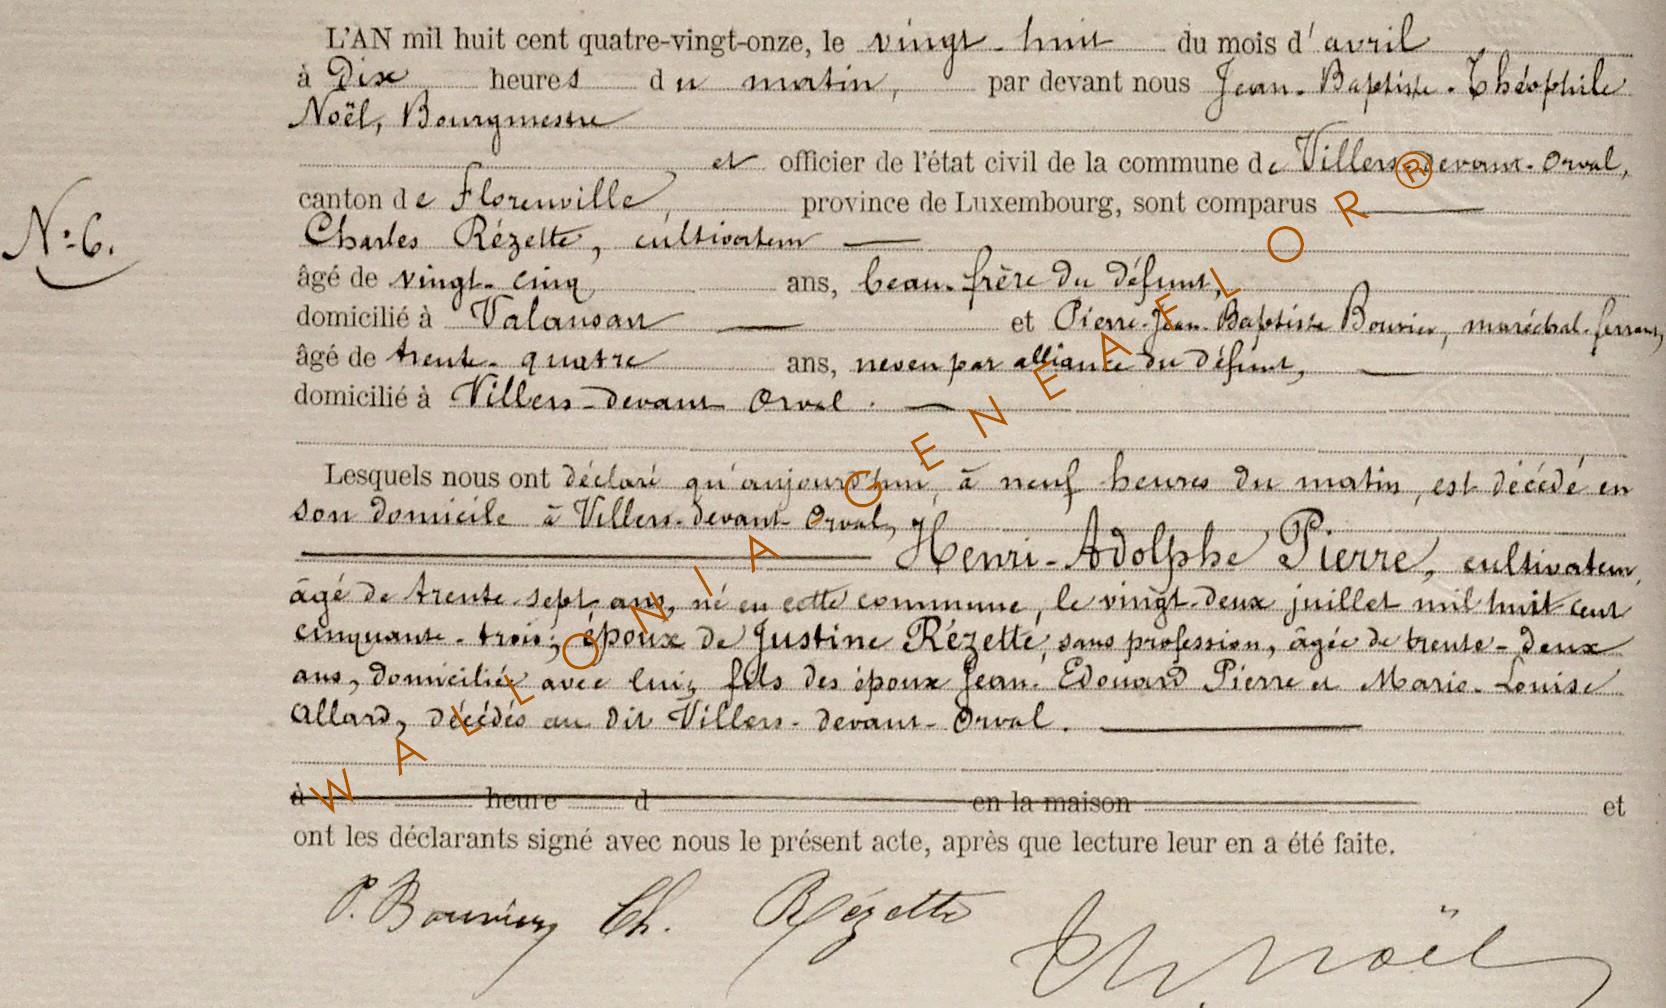 L'AN mil huit cent quatre-vingt-onze, le vingt-huit du mois d'avril
à Dix heures du matin, par devant nous Jean-Baptiste-Théophile
Noël, Bourgmestre
et officier de l'état civil de la commune de Villers-devant-Orval,
canton de Florenville, province de Luxembourg, sont comparus
N° 6.
Charles Rézette, cultivateur
âgé de vingt-cinq ans, beau-frère du défunt,
domicilié à Valansan et Pierre-Jean-Baptiste Bouvier, maréchal-ferrant,
âgé de trente-quatre ans, neveu par alliance du défunt,
domicilié à Villers-devant Orval.
Lesquels nous ont déclaré qu'aujourd'hui, à neuf heures du matin, est décédé en
son domicile à Villers-devant-Orval,
Henri-Adolphe Pierre, cultivateur,
âgé de trente-sept ans, né en cette commune, le vingt-deux juillet mil huit cent
cinquante-trois; époux de Justine Rézette, sans profession, âgée de trente-deux
ans, domiciliée avec lui; fils des époux Jean-Edouard Pierre et Marie-Louise
Allard, décédés au dit Villers-devant-Orval.
à heure d en la maison et
ont les déclarants signé avec nous le présent acte, après que lecture leur en a été faite.
P. Bouvier Ch. Rézette Th. Noël
WALLONIA GENEAFLOR ®